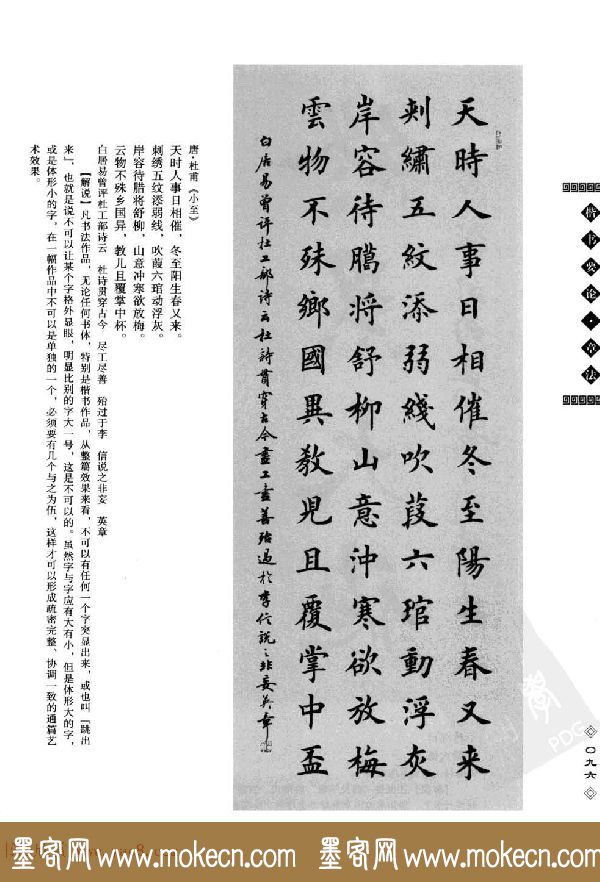 楷书要论·章法
〇九六
天時人事日相催冬至陽生春又来
刺繡五紋添弱綫吹葭六琯動浮灰
岸容待臈将舒柳山意沖寒欲放梅
雲物不殊鄉國異教児且覆掌中盃
白居易曾评杜工部诗云杜詩貫穿古今盡工盡善殆過於李信說之非妄英章
唐·杜甫《小至》
天时人事日相催，冬至阳生春又来。
刺绣五纹添弱线，吹葭六琯动浮灰。
岸容待腊将舒柳，山意冲寒欲放梅。
云物不殊乡国异，教儿且覆掌中杯。
白居易曾评杜工部诗云 杜诗贯穿古今 尽工尽善 殆过于李 信说之非妄 英章
【解说】凡书法作品，无论任何书体，特别是楷书作品，从整篇效果来看，不可以有任何一个字突显出来，或也叫『跳出
来』，也就是说不可以让某个字格外显眼，明显比别的字大一号，这是不可以的。虽然字与字应有大有小，但是体形大的字，
或是体形小的字，在一幅作品中不可以是单独的一个，必须要有几个与之为伍，这样才可以形成疏密完整、协调一致的通篇艺
术效果。
PDG
墨客网 www.mokecn.com 墨客网 www.mokecn.com